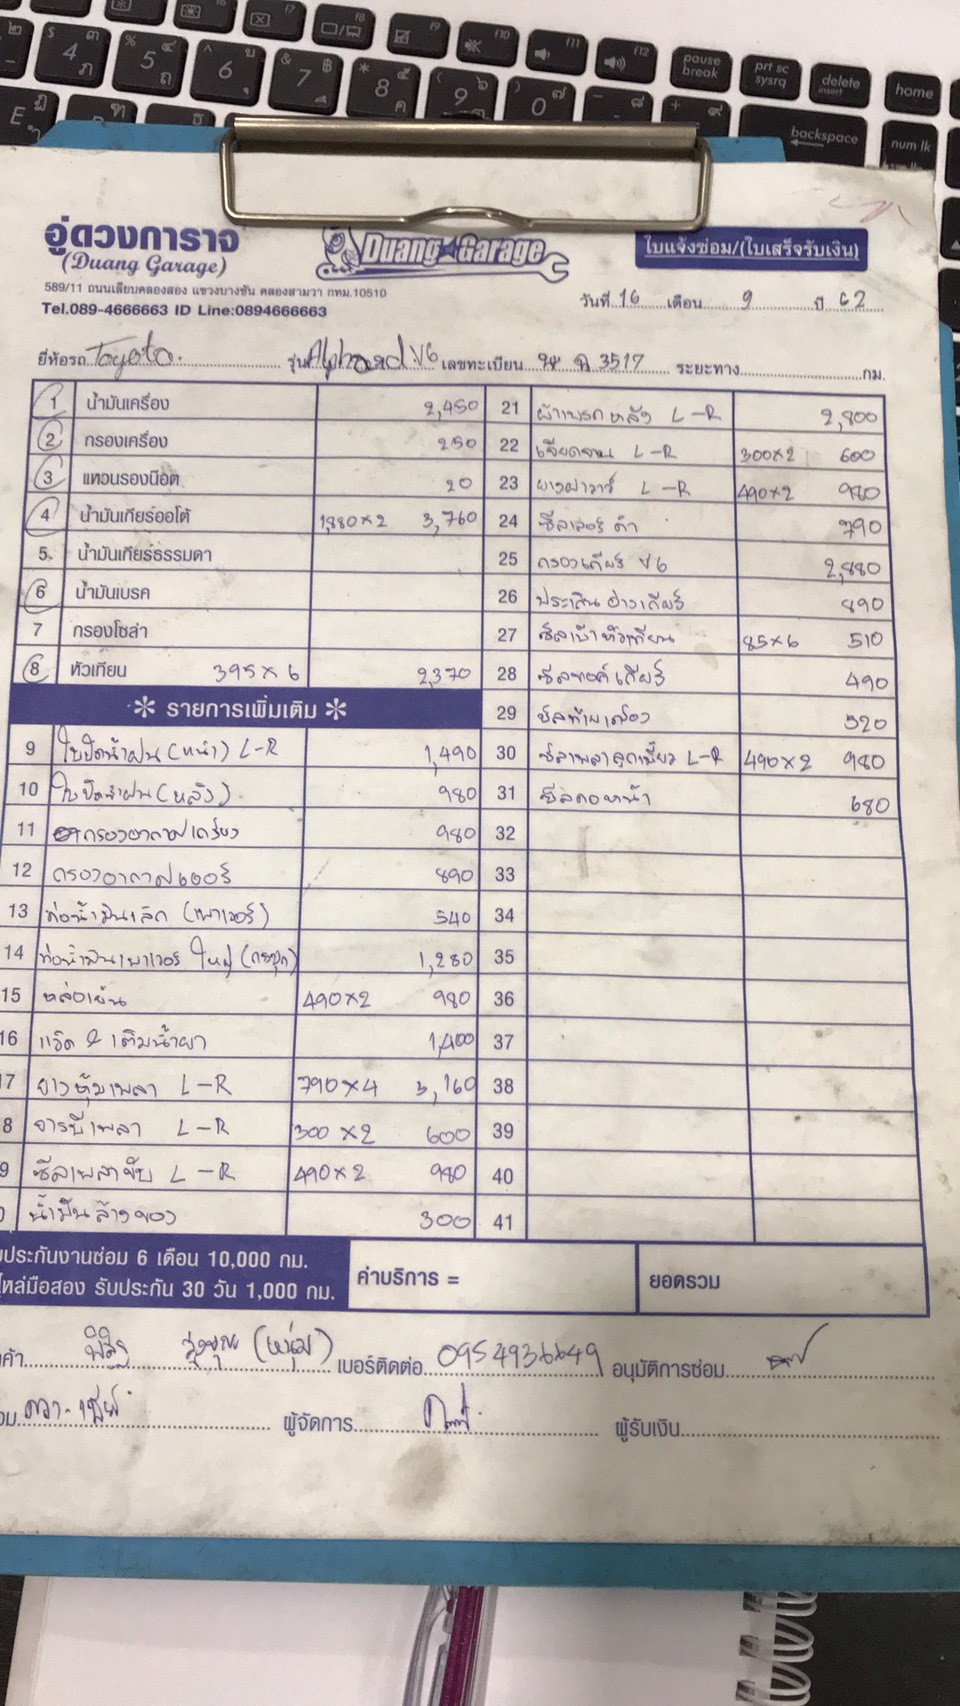 อู่ดวงการาจ
(Duang Garage)
Duang Garage
ใบแจ้งซ่อม/(ใบเสร็จรับเงิน)
589/11 ถนนเลียบคลองสอง แขวงบางชัน คลองสามวา กทม.10510
Tel.089-4666663 ID Line:0894666663
วันที่ 16 เดือน 9 ปี 62
ยี่ห้อรถ Toyota. รุ่น Alphard V6 เลขทะเบียน 3517 ระยะทาง กม.
1 น้ำมันเครื่อง 2,450
2 กรองเครื่อง 250
3 แหวนรองน๊อต 20
4 น้ำมันเกียร์ออโต้ 1,880×2 3,760
5. น้ำมันเกียร์ธรรมดา
6 น้ำมันเบรค
7 กรองโซล่า
8 หัวเทียน 395×6 2,370
* รายการเพิ่มเติม *
9 ใบปัดน้ำฝน (หน้า) L-R 1,490
10 ใบปัดน้ำฝน (หลัง) 980
11 กรองอากาศเครื่อง 980
12 กรองอากาศแอร์ 890
13 ท่อน้ำมันเล็ก (เพาเวอร์) 540
14 ท่อน้ำมันเพาเวอร์ ใหญ่ 1,280
15 หล่อเย็น 490×2 980
16 แวค & เติมน้ำยา 1,400
7 ยางหุ้มเพลา L-R 790×4 3,160
8 จารบีเพลา L-R 300×2 600
9 ซีลเพลาขับ L-R 490×2 980
น้ำมันล้างของ 300
21 ผ้าเบรคหลัง L-R 2,800
22 เจียจาน L-R 300×2 600
23 L-R 490×2 980
24 790
25 กรองเกียร์ V6 2,880
26 ประเก็นอ่างเกียร์ 890
27 ซีลเบ้าหัวเทียน 85×6 510
28 490
29 ซีลท้ายเครื่อง 520
30 ซีลเพลาลูกเบี้ยว L-R 490×2 980
31 ซีลคอหน้า 680
32
33
34
35
36
37
38
39
40
41
ประกันงานซ่อม 6 เดือน 10,000 กม.
ไหล่มือสอง รับประกัน 30 วัน 1,000 กม.
ค่าบริการ =
ยอดรวม
(หนุ่ม) เบอร์ติดต่อ 0954936649 อนุมัติการซ่อม
ผู้จัดการ ผู้รับเงิน